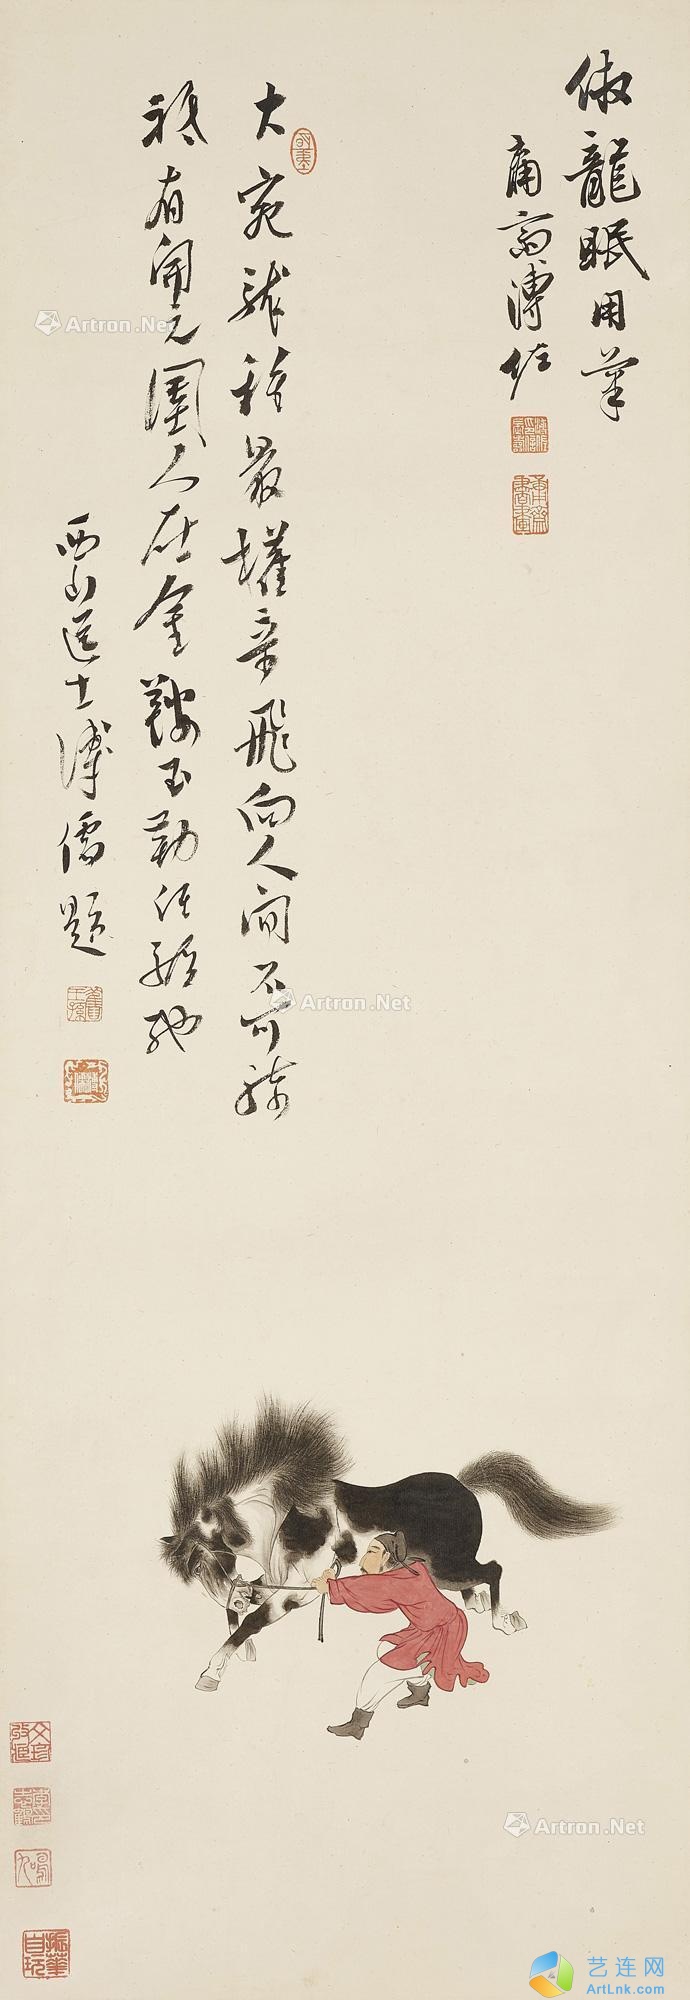 倣龍眠用筆
庸齋溥佐
庸齋書畫
大宛龍種最權奇飛向人間不可騎
祇有開元圉人在金鞍玉勒任驅馳
西山逸士溥儒題
舊王孫
Artron.Net
Artron.Net
Artron.Net
振華自玩
艺连网
ArtLnk.com